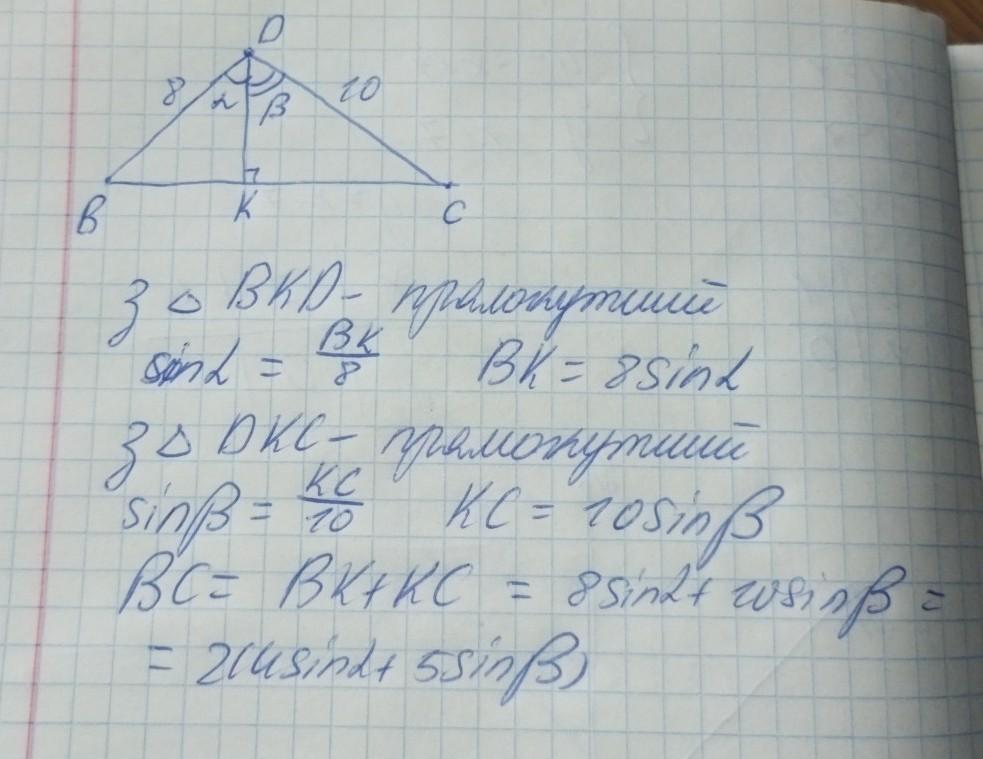 D
8 α β 10
B K C
з △ BKD - прямокутний
sinα = BK/8 BK = 8sinα
з △ DKC - прямокутний
sinβ = KC/10 KC = 10sinβ
BC = BK+KC = 8sinα+ 10sinβ =
= 2(4sinα+ 5sinβ)